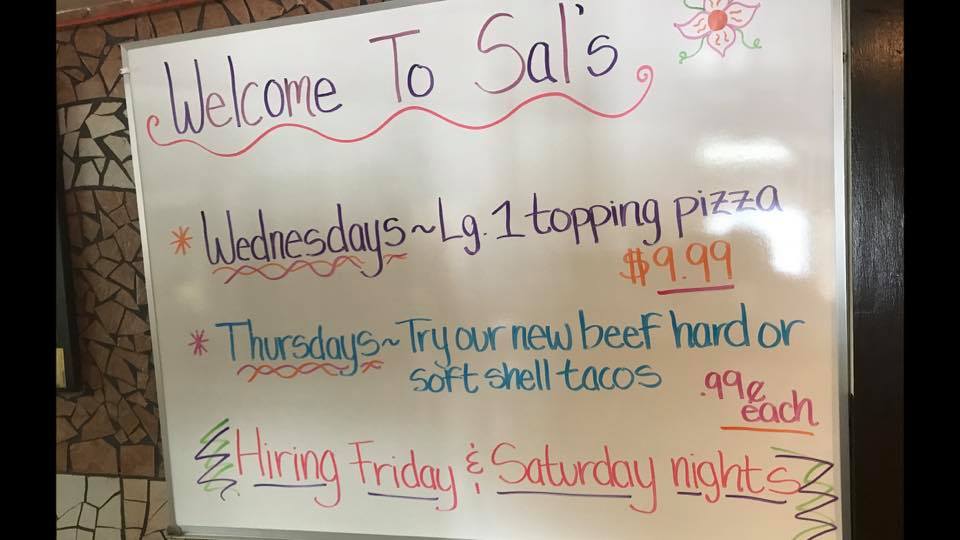 Welcome To Sal's
* Wednesdays ~ Lg. 1 topping pizza
$9.99
* Thursdays ~ Try our new beef hard or
soft shell tacos
.99¢
each
Hiring Friday & Saturday nights